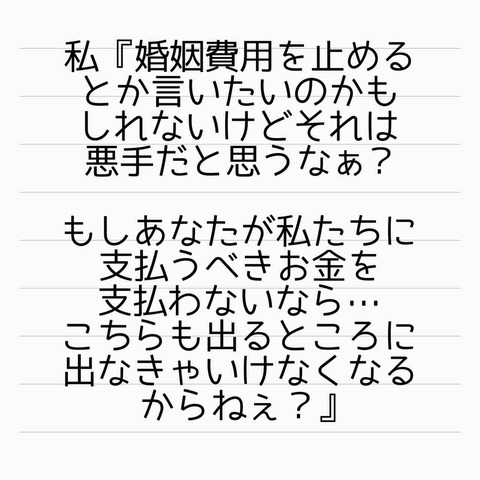 私『婚姻費用を止める
とか言いたいのかも
しれないけどそれは
悪手だと思うなぁ？
もしあなたが私たちに
支払うべきお金を
支払わないなら…
こちらも出るところに
出なきゃいけなくなる
からねぇ？』